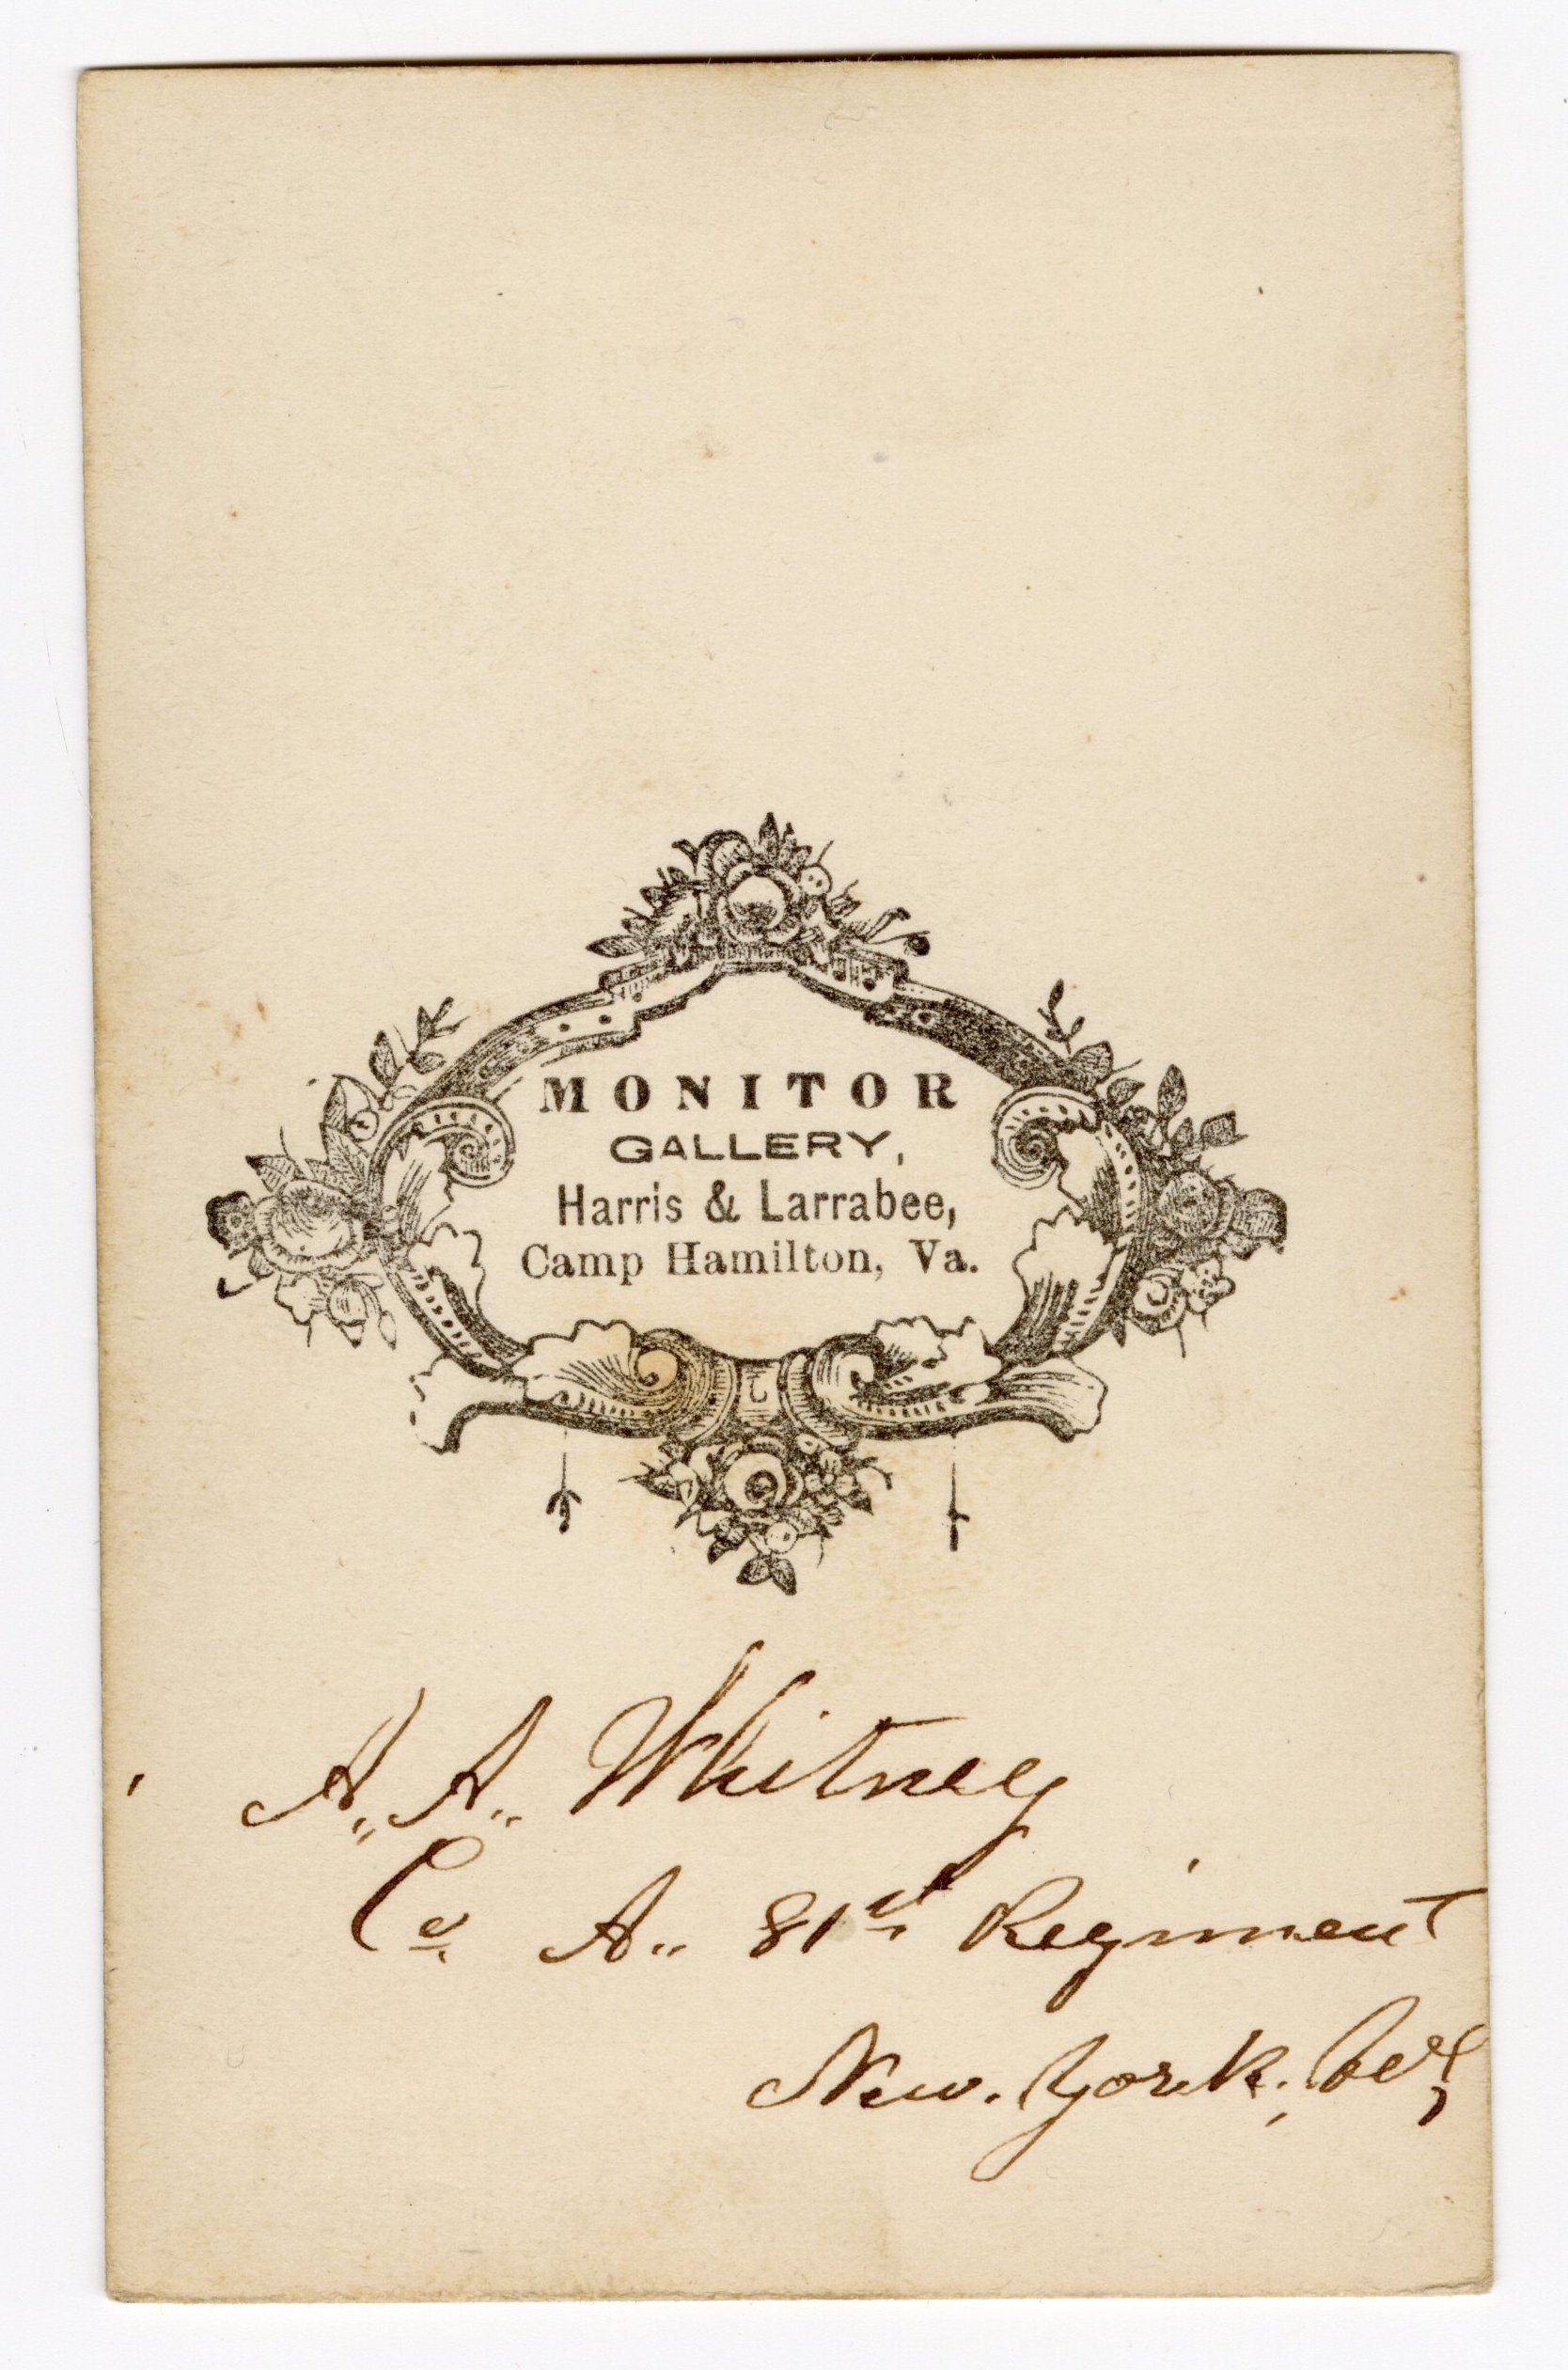 MONITOR
GALLERY,
Harris & Larrabee,
Camp Hamilton, Va.
A,, A,, Whitney
Co A,, 81st Regiment
New. York,